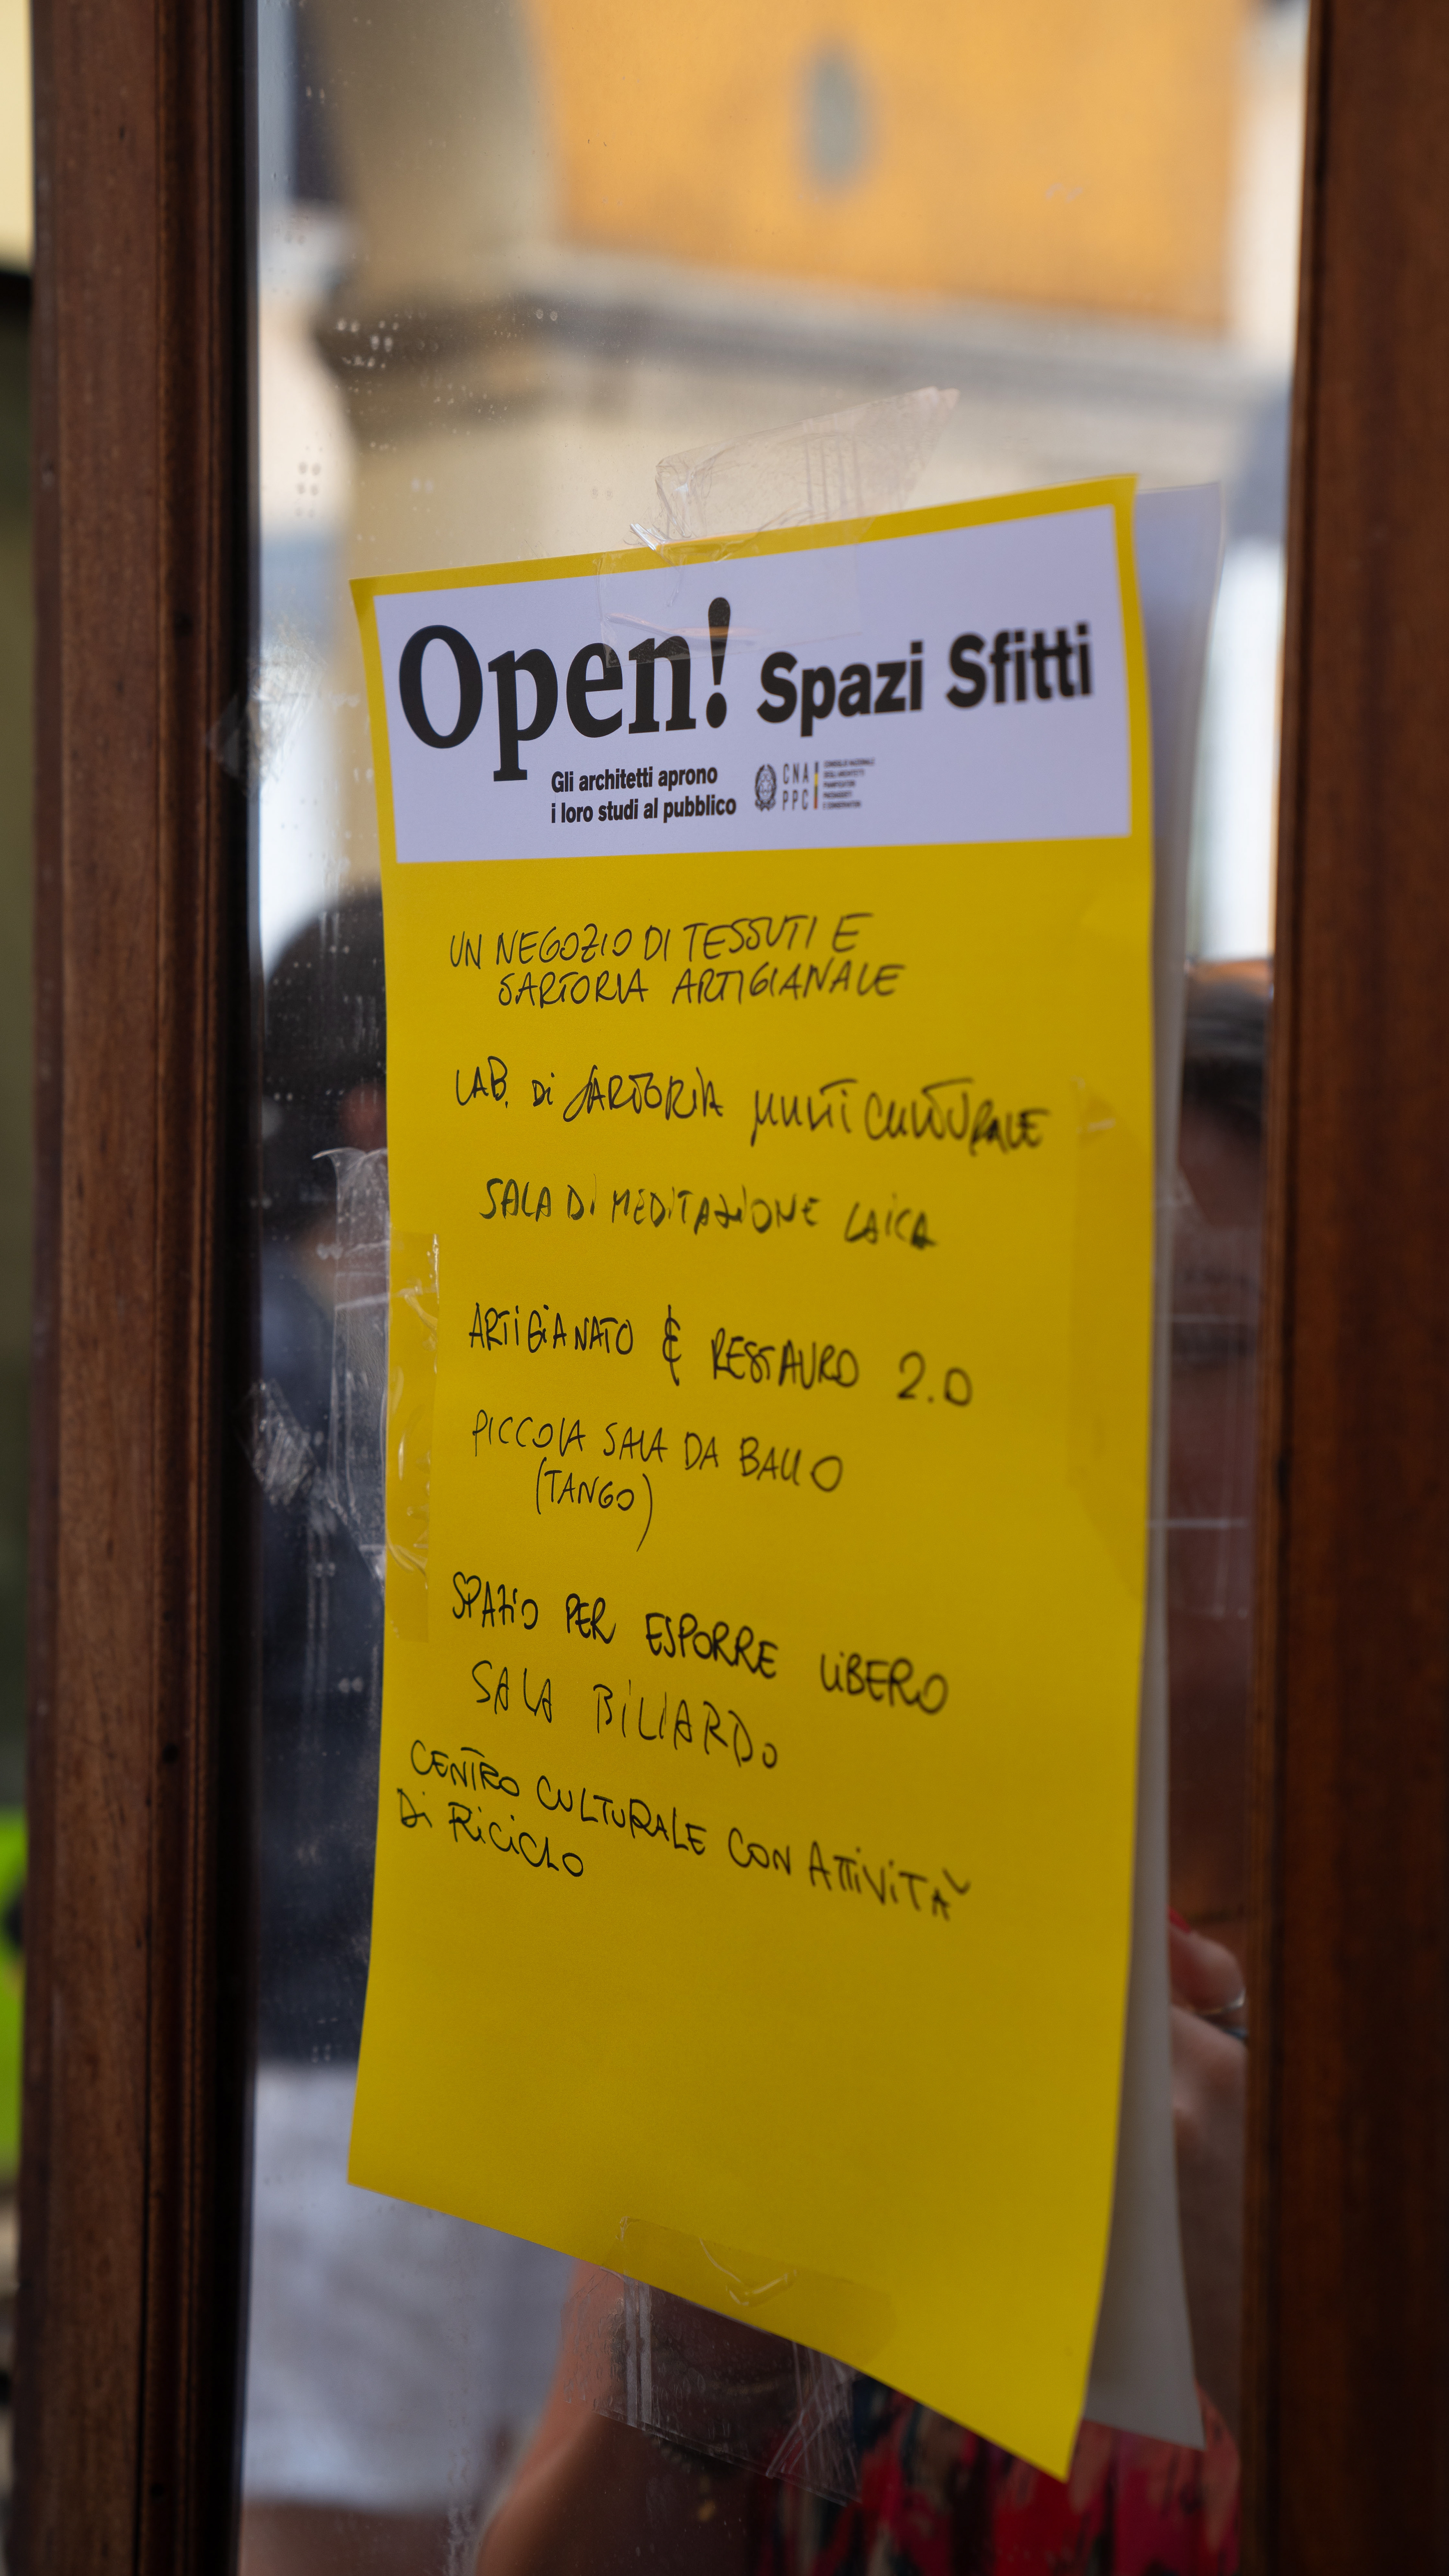 Open! Spazi Sfitti
Gli architetti aprono
i loro studi al pubblico
CNA
PPC
CONSIGLIO NAZIONALE
DEGLI ARCHITETTI
PIANIFICATORI
PAESAGGISTI
E CONSERVATORI
UN NEGOZIO DI TESSUTI E
SARTORIA ARTIGIANALE
LAB. Di SARTORIA MULTiCULTURALE
SALA Di MEDITAZiONE LAiCA
ARTiGiANATO & RESTAURO 2.0
PICCOLA SALA DA BALLO
(TANGO)
SPAZiO PER ESPORRE LiBERO
SALA BiLiARDo
CENTRO CULTURALE CON ATTiViTÀ
Di RiCiCLO